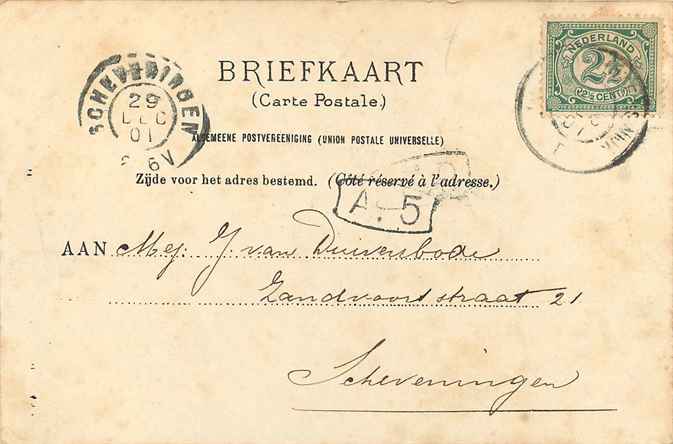 NEDERLAND
2½
(2½ CENT)
SCHEVENINGEN
29
DEC
01
6V
BRIEFKAART
(Carte Postale.)
ALGEMEENE POSTVEREENIGING (UNION POSTALE UNIVERSELLE)
Zijde voor het adres bestemd. (Côté réservé à l'adresse.)
A. 5
AAN Mej. J van Duivenbode
Zandvoortstraat 21
Scheveningen